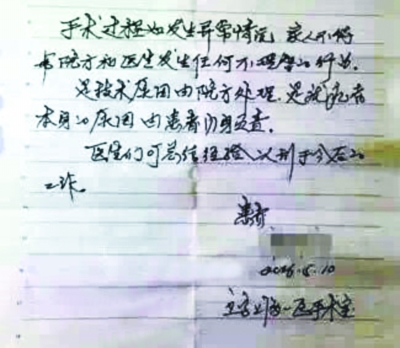 手术过程如发生异常情况,家人不得
与院方和医生发生任何不理智的行为.
是技术原因由院方处理.是我患者
本身的原因由患者负责.
医生们可总结经验以利于今后的
工作。
患者
一医手术室